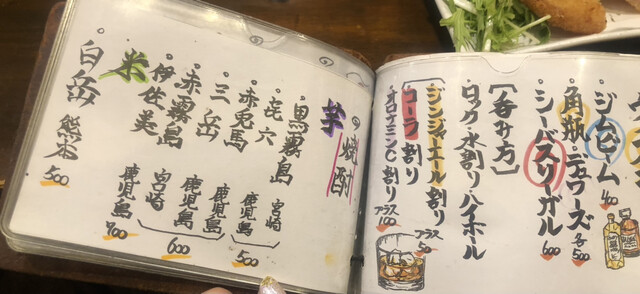 ジムビーム 400
・角瓶 デュワーズ 各500
・シーバスリガル 600
[呑み方]
ロック・水割り・ハイボール
ジンジャーエール割り
コーラ割り プラス50
オロナミンC割り プラス100
芋焼酎
・黒霧島 宮崎
・㐂六 鹿児島
500
・赤兎馬 鹿児島
・三岳 鹿児島
600
・赤霧島 宮崎
・伊佐美 鹿児島
米
・白岳 熊本 500